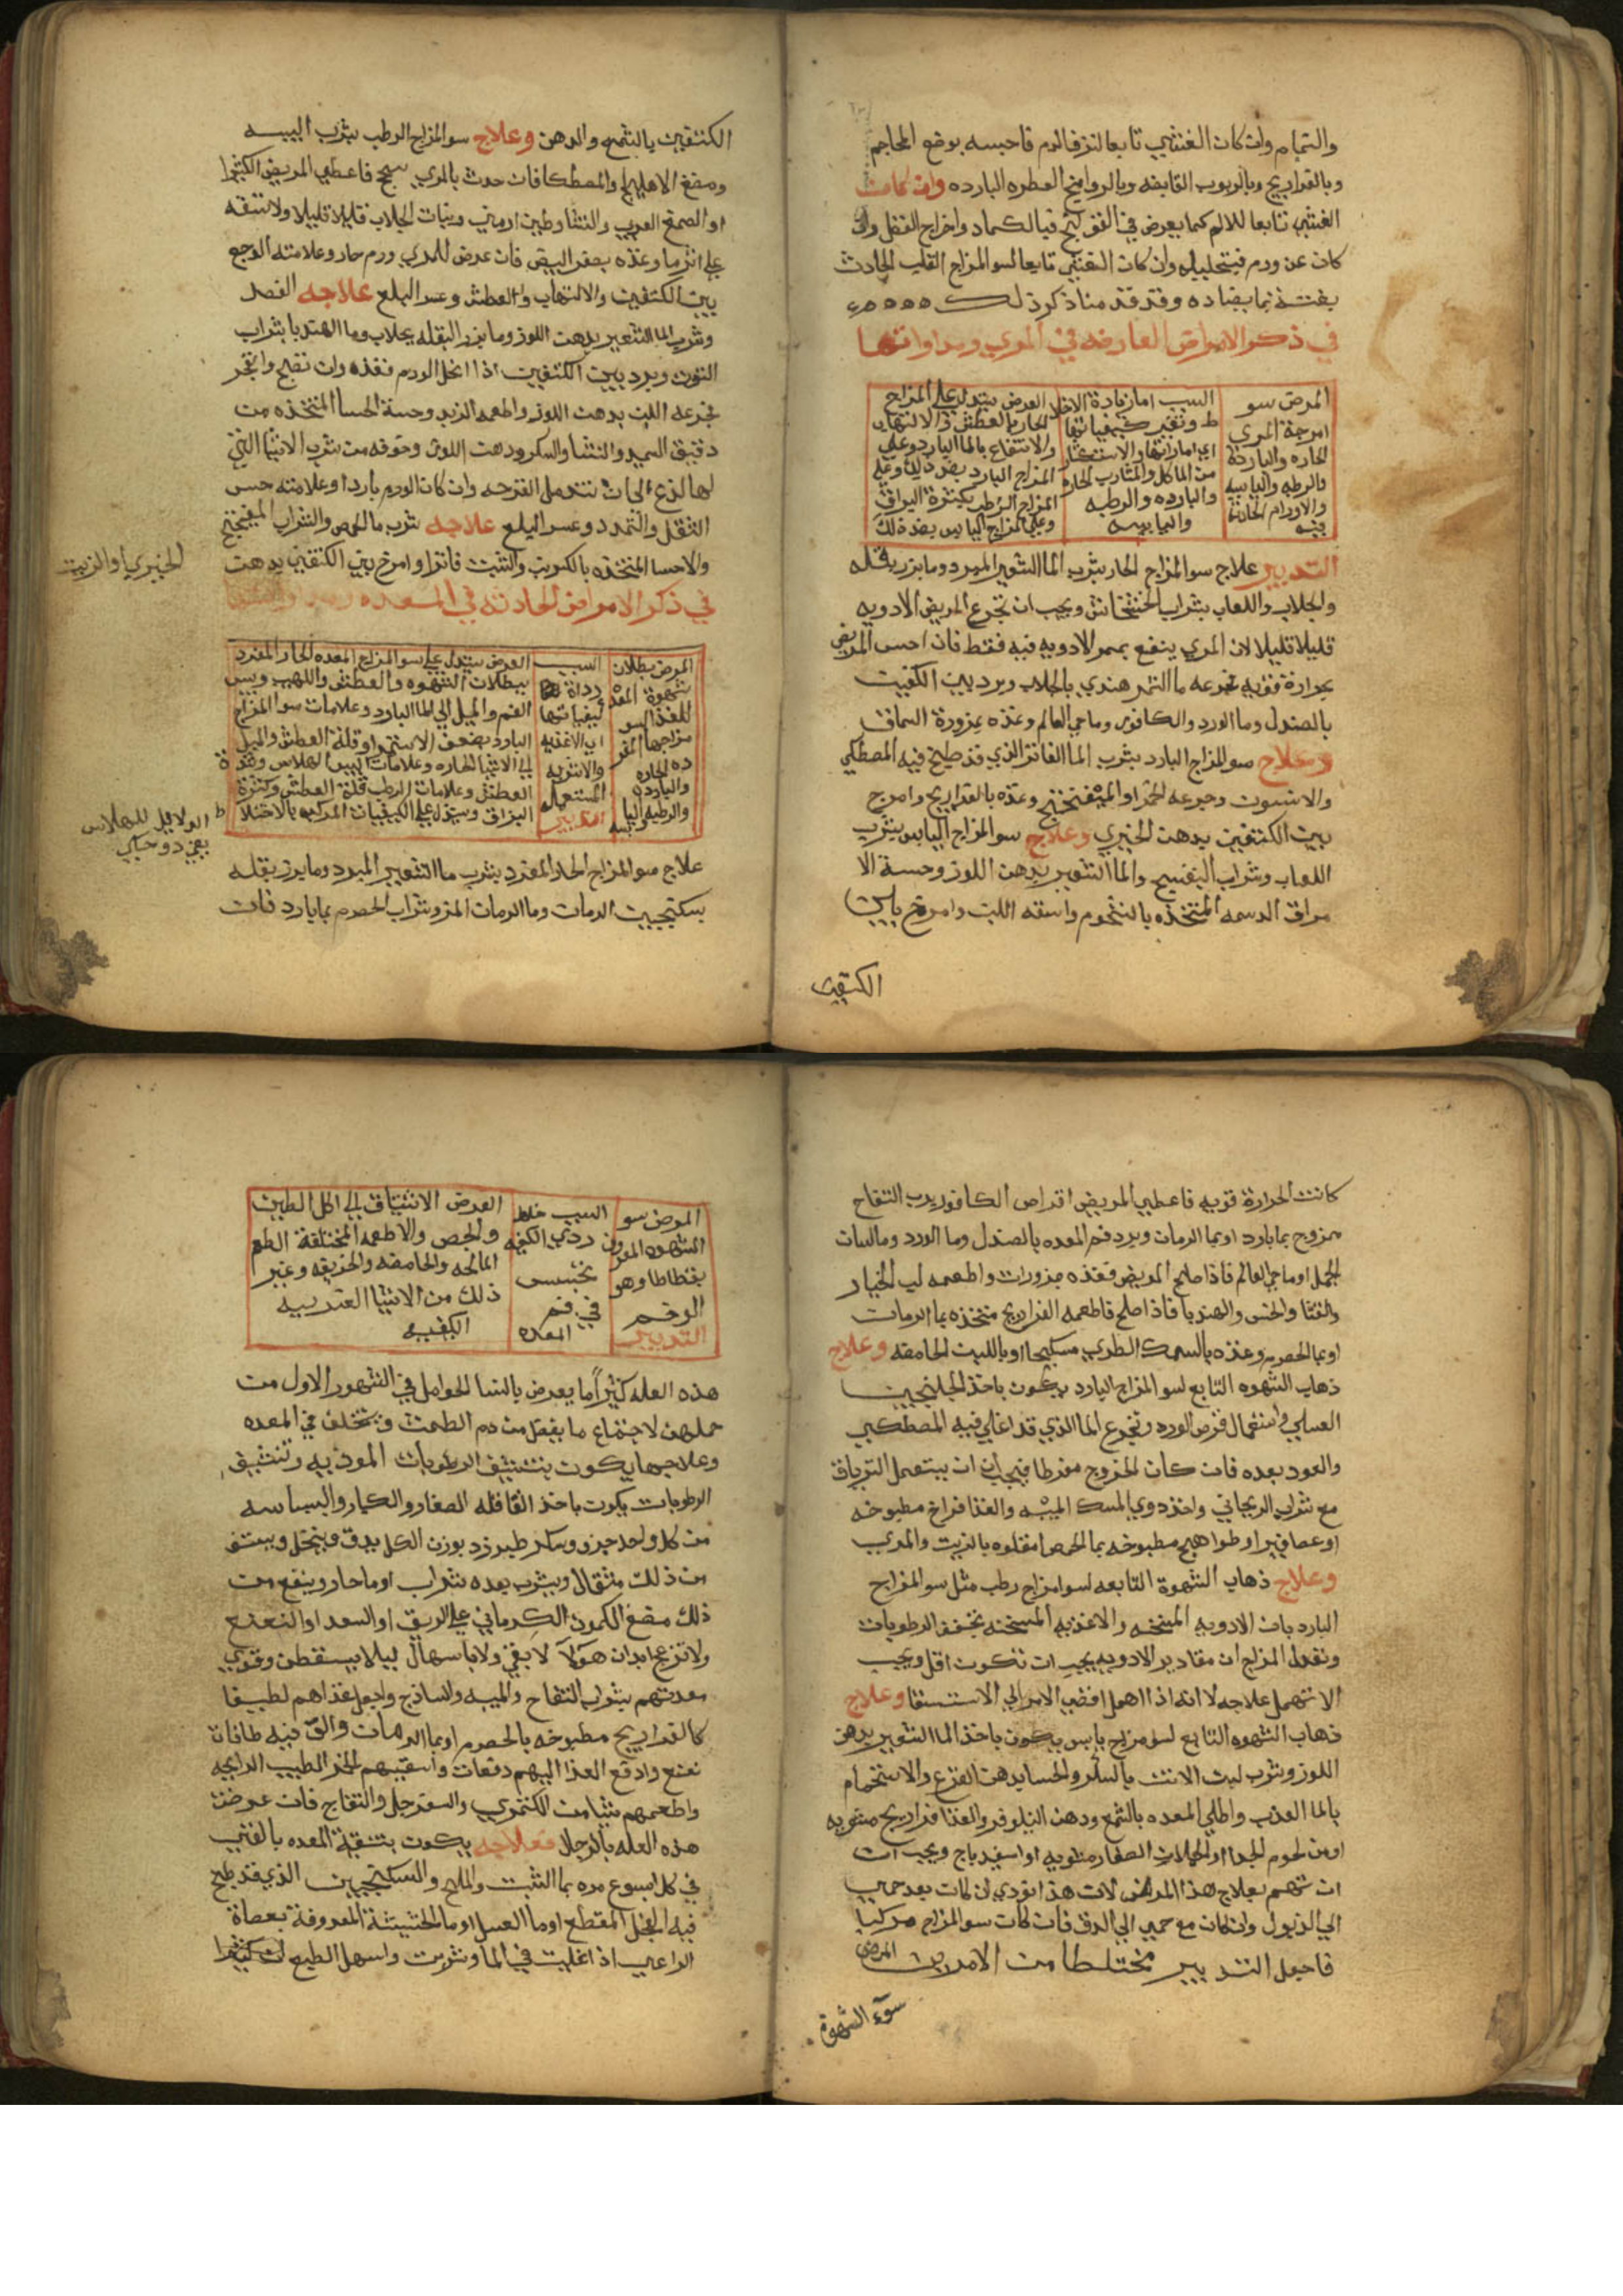 والتمام وان كان الغشي تابعا لنزف الدم فاحبسه بوضع المحاجم
وبالفراريج وبالربوب القابضه وبالروايح العطره البارده وان كانت
الغشي تابعا للالم كما يعرض في القولنج فبالكماد واخراج الثفل وان
كان عن ورم فبتحليله وان كان الغشي تابعا لسو المزاج القلب الحادث
بغتة بما يضاده وقد قدمنا ذكر ذلك
في ذكر الامراض العارضه في المري ومداواتها
المرض سو
امزجة المري
الحاره والبارده
والرطبه واليابسه
والاورام الحادثة
فيه
السبب اما زيادة الاخلا
ط وتغير كيفياتها
من الماكل والمشارب الحاره
والبارده والرطبه
واليابسه
العرض يستدل علي المزاج
الحار بالعطش والالتهاب
والانتفاع بالما البارد وعلي
المزاج البارد بضد ذلك وعلي
المزاج الرطب بكثرة البزاق
وعلي المزاج اليابس بضد ذلك
التدبير علاج سو المزاج الحار بشرب الما الشعير المبرد وما بزر بقله
والجلاب واللعاب بشراب الخشخاش ويجب ان تجرع المريض الادويه
قليلا قليلا لان المري ينفع بممر الادويه فيه فقط فان احس المريض
بحرارة قويه تجرعه ما التمر هندي بالجلاب وبرد بين الكتفين
بالصندل وما الورد والكافور وما حي العالم وغذه بمزورة السماق
وعلاج سو المزاج البارد بشرب الما الفاتر الذي قد طبخ فيه المصطكي
والانسون وجرعه الخمر او الميفختج وغذه بالفراريج وامرخ
بين الكتفين بدهن الخيري وعلاج سو المزاج اليابس بشرب
اللعاب وشراب البنفسج والما الشعير بدهن اللوز وحسه الا
مراق الدسمه المتخذه بالشحوم واسقه اللبن وامرخ بين
الكتفين
الكتفين بالشمع والدهن وعلاج سو المزاج الرطب بشرب الميبه
ومضغ الاهليلج والمصطكا فان حدث بالمري سحج فاعطي المريض الكثيرا
او الصمغ العربي والنشا وطين ارمني وبنات الجلاب قليلا قليلا ولا تسقه
علي اثرها وغذه بصفر البيض فان عرض للمري ورم حار وعلامته الوجع
بين الكتفين والالتهاب والعطش وعسر البلع علاجه الفصد
وشرب الما الشعير بدهن اللوز وما بزر البقله بجلاب وما الهندبا بشراب
التوت وبرد بين الكتفين اذا انحل الورم فغذه وان نضج وانفجر
فجرعه اللبن بدهن اللوز واطعمه الزبد وحسه الحسا المتخذه من
دقيق السميد والنشا والسكر ودهن اللوز وحوفه من شرب الاشيا التي
لها لذع الي ان تندمل القرحه وان كان الورم باردا وعلامته حس
الثقل والتمدد وعسر البلع علاجه شرب ما الحمص والشراب الميفختج
والاحسا المتخذه بالكرنب والشبت فاترا وامرخ بين الكتفين بدهن
الخيري او الزيت
في ذكر الامراض الحادثه في المعده ومداواتها
المرض بطلان
شهوة المعد
للغذا لسو
مزاجها المفر
ده الحاره
والبارده
والرطبه واليا
بسه
السبب
رداة
كيفياتها
اي الاغذيه
والاشربه
المستعمله
التدبير
العرض يستدل علي سو المزاج المعده الحار المفرد
ببطلان الشهوه والعطش واللهب ويبس
الفم والميل الي الما البارد وعلامات سو المزاج
البارد بضعف الاستمرا وقلة العطش والميل
الي الاشيا الحاره وعلامات اليبس الهلاس وشدة
العطش وعلامات الرطب قلة العطش وكثرة
البزاق ويستدل علي الكيفيات المركبه بالاختلا
ط الدلايل للهلاس
علاج سو المزاج الحار المفرد بشرب ما الشعير المبرد وما بزر بقله
بسكنجبين الرمان وما الرمان المز وشراب الحصرم بما بارد فان
كانت الحرارة قويه فاعطي المريض اقراص الكافور برب التفاح
ممزوج بما بارد او بما الرمان وبرد فم المعده بالصندل وما الورد وما لسان
الحمل او ما حي العالم فاذا صلح المريض فغذه بمزورات واطعمه لب الخيار
والقثا والخس والهندبا فاذا صلح فاطعمه الفراريج متخذه بما الرمان
او بما الحصرم وغذه بالسمك الطري مسكبجا او باللبن الحامضه وعلاج
ذهاب الشهوه التابع لسو المزاج البارد يكون باخذ الجلنجبين
العسلي واستعمال قرص الورد وتجرع الما الذي قد اغلي فيه المصطكي
والعود بعده فان كان الخروج مفرطا فيجب ان يستعمل الترياق
مع شراب الريحاني واخذ دوي المسك الميبه والغذا فراخ مطبوخه
او عصافير او طواهيج مطبوخه بما الحمص او مقلوه بالزيت والمري
وعلاج ذهاب الشهوة التابعه لسو مزاج رطب مثل سو المزاج
البارد بان الادويه المسخنه والاغذيه المسخنه تجفف الرطوبات
وتعدل المزاج ان مقادير الادويه يجب ان تكون اقل ويجب
الا تهمل علاجه لانه اذا اهمل افضي الامر الي الاستسقا وعلاج
ذهاب الشهوه التابع لسو مزاج يابس يكون باخذ الما الشعير بدهن
اللوز وشرب لبن الاتن بالسكر والحسا بدهن القرع والاستحمام
بالما العذب واطلي المعده بالشمع ودهن النيلوفر والغذا فراريج مشويه
او من لحوم الجدا او الحملان الصغار مشويه او اسفيدباج ويجب ان
ان تهتم بعلاج هذا المرض لان هذا يودي ان كان بعد حمي
الي الذبول وان كان مع حمي الي الدق فان كان سو المزاج مركبا
فاجعل التدبير مختلطا من الامرين المرض
سوء الشهوة
المرض سو
الشهوه المعروف
بقطاطا وهو
الوخم
التدبير
السبب خلط
ردي الكيفيه
يحتبس
في فم
المعده
العرض الاشتياق الي اكل الطين
والجص والاطعمه المختلفة الطعم
المالحه والحامضه والحريفه وغير
ذلك من الاشيا الغريبه
الكيفيه
هذه العله كثيراً ما يعرض بالنسا الحوامل في الشهور الاول من
حملهن لاجتماع ما يفضل من دم الطمث ويتخلف في المعده
وعلاجها يكون بتنشيف الرطوبات الموذيه وتنشيف
الرطوبات يكون باخذ القاقله الصغار والكبار والبسباسه
من كل واحد جزو وسكر طبرزد بوزن الكل يدق وينخل ويستف
من ذلك مثقال ويشرب بعده شراب او ما حار وينفع من
ذلك مضغ الكمون الكرماني علي الريق او السعد او النعنع
ولا تزعج ابدان هولاً لا بقي ولا باسهال ليلا يسقطن وقوي
معدتهم بشراب التفاح والميبه والساذج واجعل غذاهم لطيفا
كالفراريج مطبوخه بالحصرم او بما الرمان والق فيه طاقات
نعنع وادفع الغذا اليهم دفعات واسقيهم الخمر الطيب الرايحه
واطعمهم شيا من الكمثري والسفرجل والتفاح فان عرضت
هذه العله بالرجال فعلاجه يكون بتنقية المعده بالقي
في كل اسبوع مره بما الشبت والملح والسكنجبين الذي قد طبخ
فيه الفجل المقطع او ما العسل او ما الحشيشة المعروفة بعصاة
الراعي اذا اغليت في الما وشربت واسهل الطبع